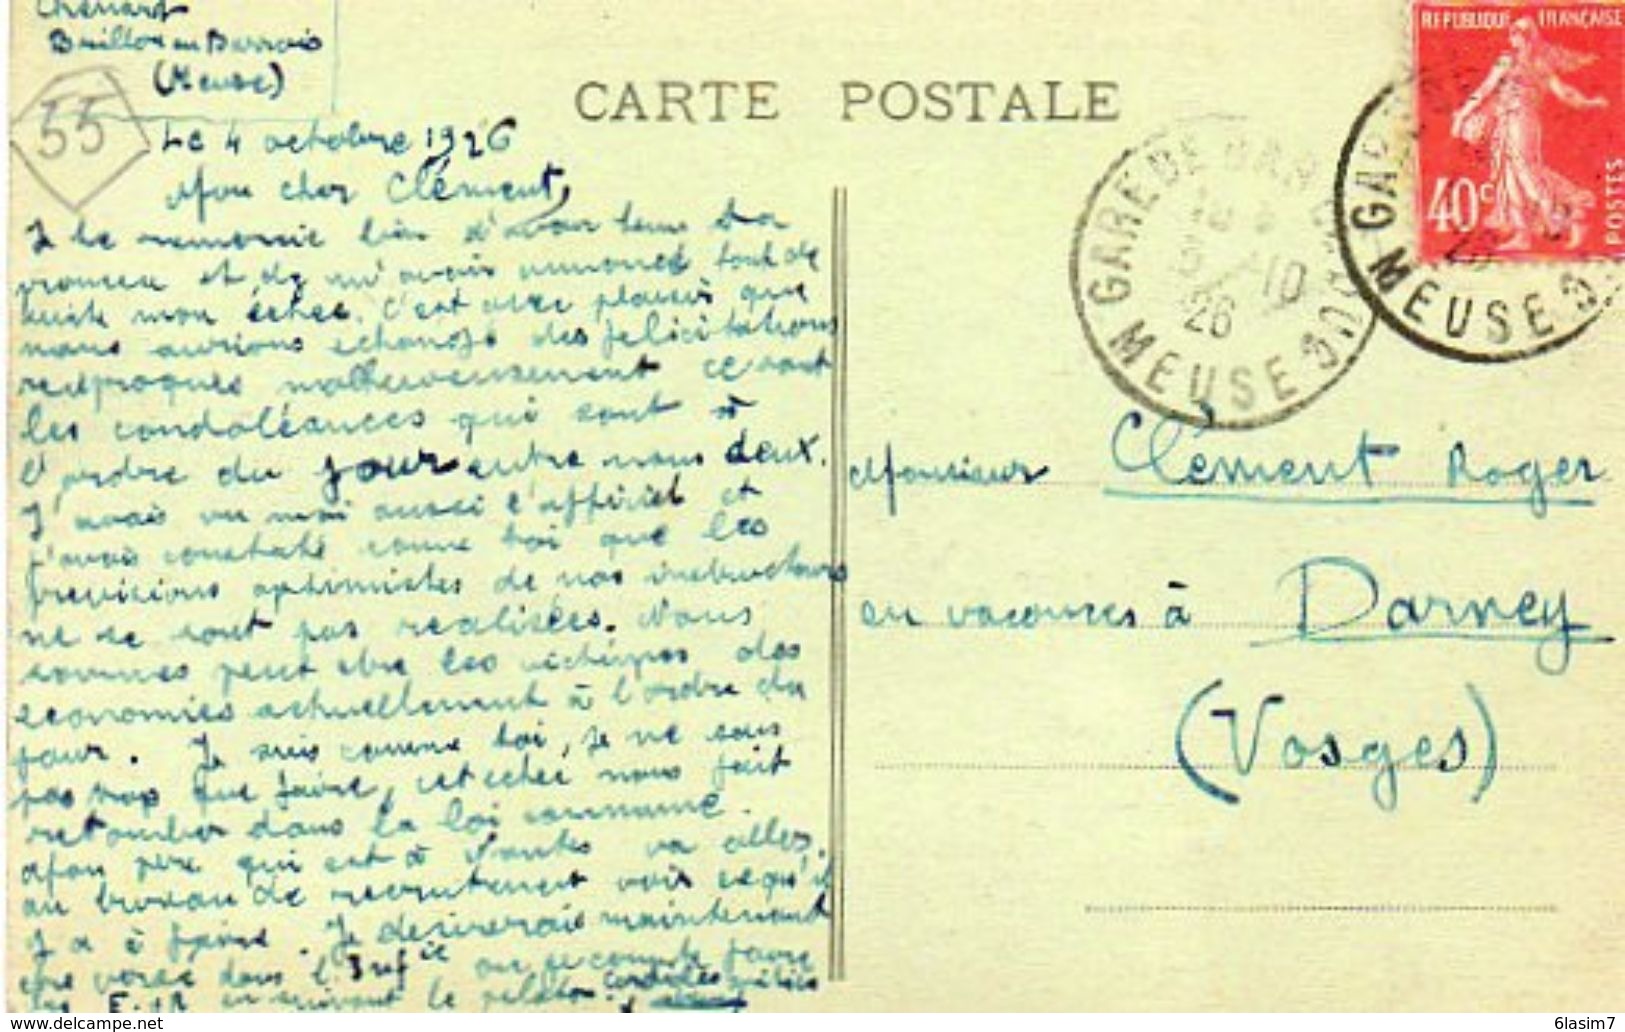 Chenart
Brillon en Barrois
(Meuse)
55
Le 4 octobre 1926
Mon cher Clément,
Je te remercie bien d'avoir tenu ta
promesse et de m'avoir annoncé tout de
suite mon échec. C'est avec plaisir que
nous aurions échangé des felicitations
reciproques malheureusement ce sont
les condoléances qui sont à
l'ordre du jour entre nous deux.
J'avais vu moi aussi l'officiel et
j'avais constaté comme toi que les
previsions optimistes de nos instructeurs
ne se sont pas realisées. Nous
sommes peut etre les victimes des
economies actuellement à l'ordre du
jour. Je suis comme toi, je ne sais
pas trop que faire, cet echec nous fait
retomber dans la loi commune.
Mon pere qui est à Nantes va aller
au bureau de recrutement voir ce qu'il
y a à faire. Je desirerais maintenant
etre versé dans l'Inf ie ou je compte faire
les E.O.R en suivant le peloton
Cordiales amitiés
CARTE POSTALE
REPUBLIQUE FRANÇAISE
40c
POSTES
GARE DE BAR
10
26
MEUSE
GARE
MEUSE
Monsieur Clément Roger
en vacances à Darney
(Vosges)
www.delcampe.net
6lasim7